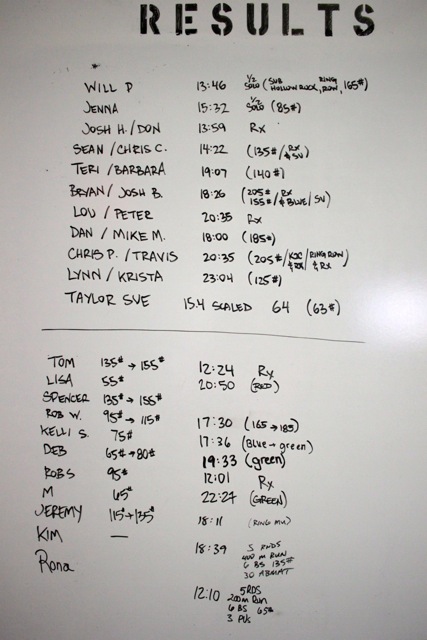 RESULTS
WILL P 13:46 1/2 SOLO (SUB HOLLOW ROCK, RING ROW, 165#)
JENNA 15:32 1/2 SOLO (85#)
JOSH H./DON 13:59 Rx
SEAN/CHRIS C. 14:22 (135#/Rx & SV)
TERI/BARBARA 19:07 (140#)
BRYAN/JOSH B. 18:26 (205#/Rx 155#/& BLUE/SV)
LOU/PETER 20:35 Rx
DAN/MIKE M. 18:00 (185#)
CHRIS P./TRAVIS 20:35 (205#/ & RX/RING ROW & RX)
LYNN/KRISTA 23:04 (125#)
TAYLOR SUE 15.4 SCALED 64 (63#)
TOM 135# → 155# 12:24 Rx
LISA 55# 20:50 (RED)
SPENCER 135# → 155#
ROB W. 95# → 115# 17:30 (165 → 185)
KELLI S. 75# 17:36 (Blue → green)
DEB 65# → 80# 19:33 (green)
ROB S 95# 12:01 Rx
M 65# 22:27 (GREEN)
JEREMY 115# → 135# 18:11 (RING MU)
KIM — 18:39 5 RNDS
400 M RUN
6 BS 135#
30 ABMAT
Rona 12:10 5 RDS
200m Run
6 BS 65#
3 PUs